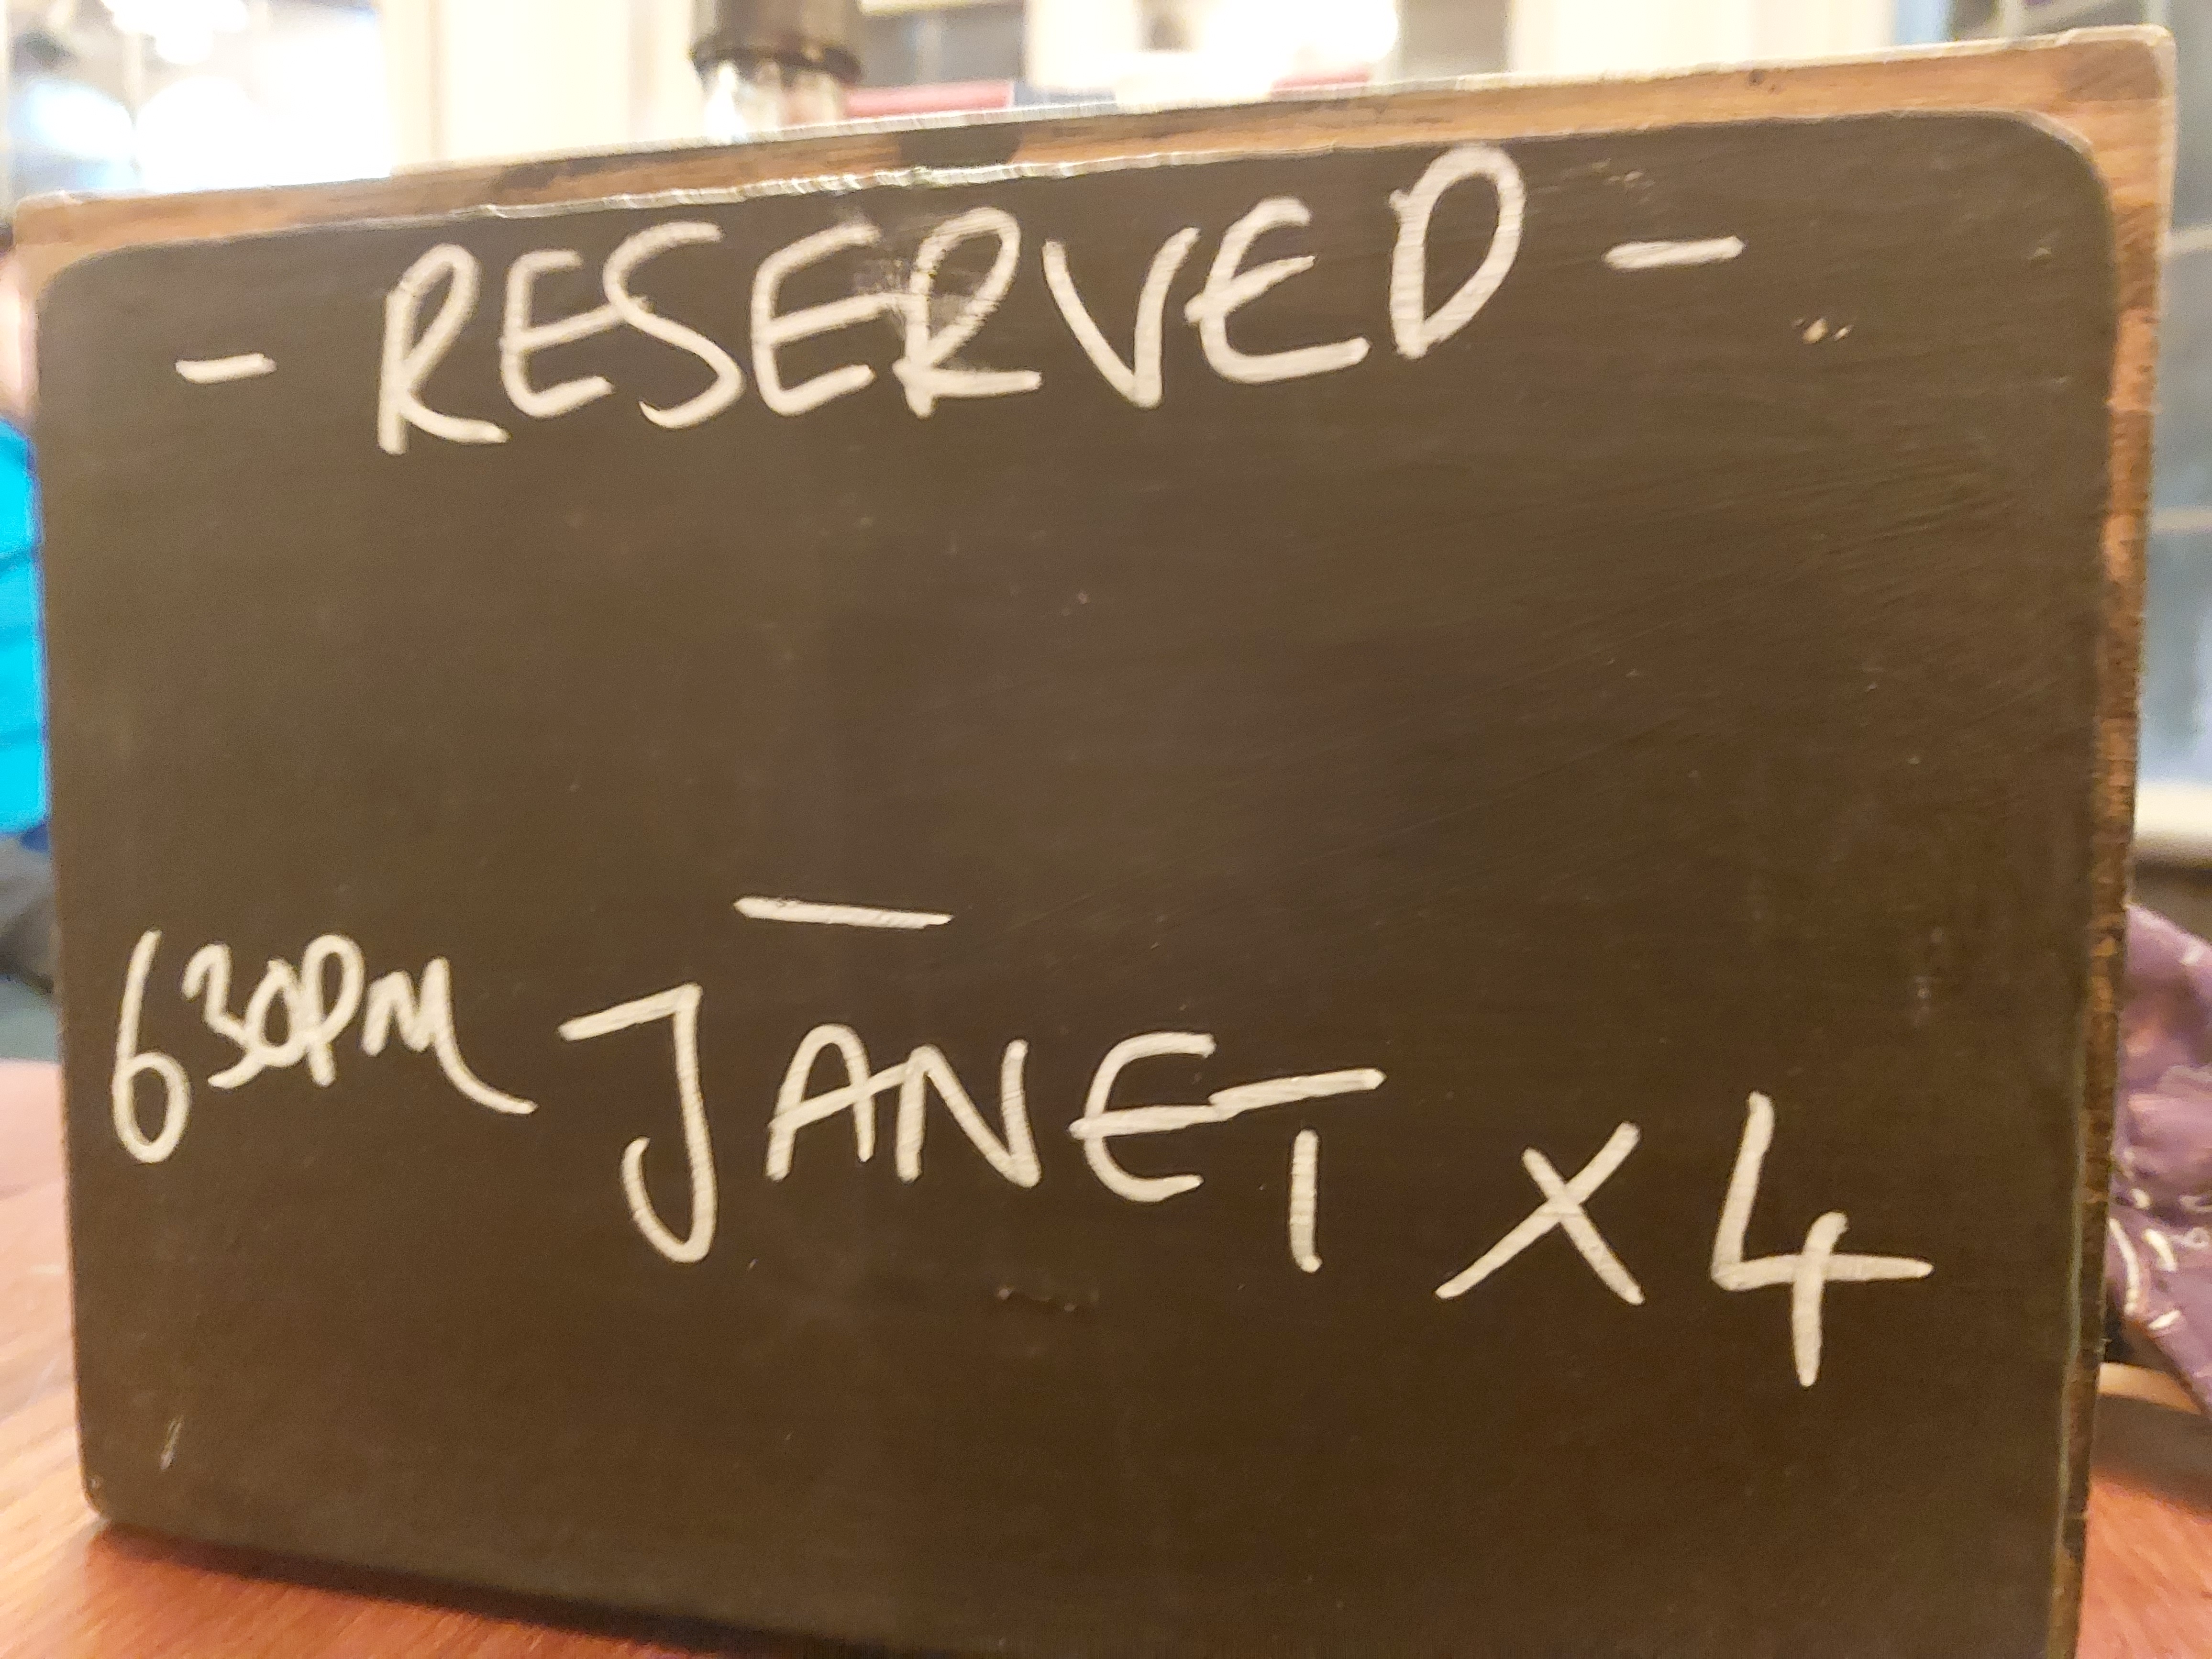 - RESERVED -
—
630PM JANET X 4